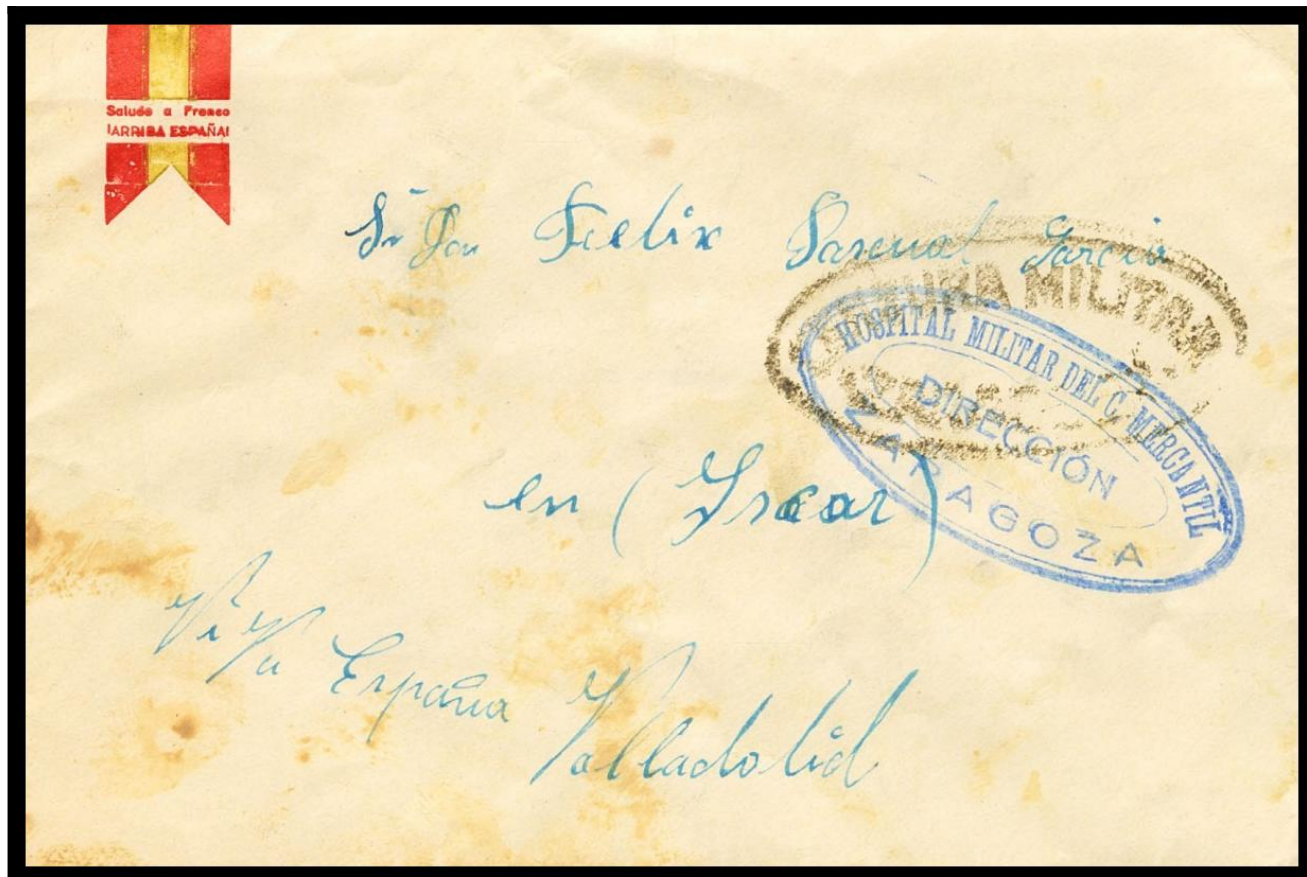 Saludo a Franco
¡ARRIBA ESPAÑA!
Sr Don Felix Pascual Garcia
MILITAR
HOSPITAL MILITAR DEL C. MERCANTIL
DIRECCIÓN
ZARAGOZA
en (Iscar)
ViVa España Valladolid